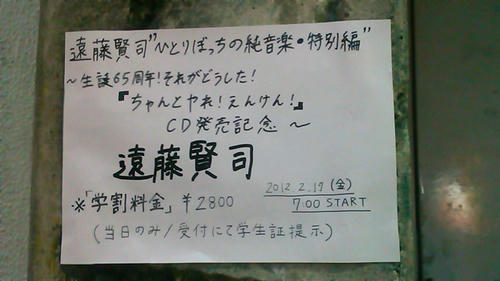 遠藤賢司"ひとりぼっちの純音楽・特別編"
～生誕65周年!それがどうした!
『ちゃんとやれ!えんけん!』
CD発売記念～
遠藤賢司
2012.2.17(金)
7:00 START
※「学割料金」¥2800
(当日のみ/受付にて学生証提示)